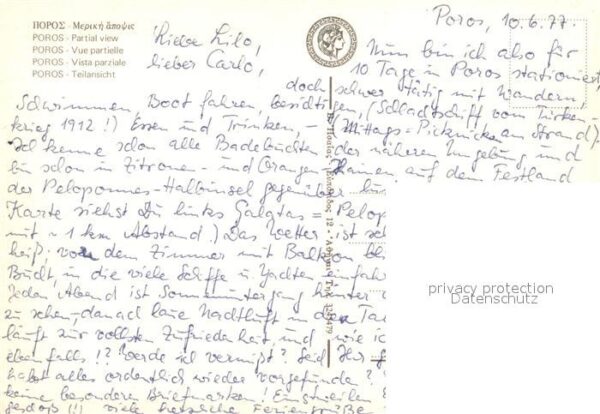 ΠΟΡΟΣ - Μερική ἄποψις
POROS - Partial view
POROS - Vue partielle
POROS - Vista parziale
POROS - Teilansicht
Poros, 10.6.77.
Liebe Lilo,
lieber Carlo,
Nun bin ich also für
10 Tage in Poros stationiert,
doch schwer tätig mit Wandern,
Schwimmen, Boot fahren, besichtigen, (Schlachtschiff vom Türken-
krieg 1912!) Essen und Trinken, - (Mittags-Picknick am Strand).
Ich kenne schon alle Badebuchten der näheren Umgebung und
bin schon in Zitronen- und Orangen-Hainen auf dem Festland
der Peloponnes-Halbinsel gegenüber
Karte siehst Du links Galatas = Pelop
mit ~ 1 km Abstand.) Das Wetter ist
heiß; von dem Zimmer mit Balkon
Bucht, in die viele Schiffe u. Yachten einfahr
Jeden Abend ist Sonnenuntergang hinter
zu sehen, danach laue Nachtluft in
läuft zur vollsten Zufriedenheit und wie
ebenfalls!? Werde ich vermißt? Seid Ihr
habt alles ordentlich wieder vorgefunden?
keine besonderen Briefmarken! Einstweilen
viele herzliche Feriengrüße
privacy protection
Datenschutz